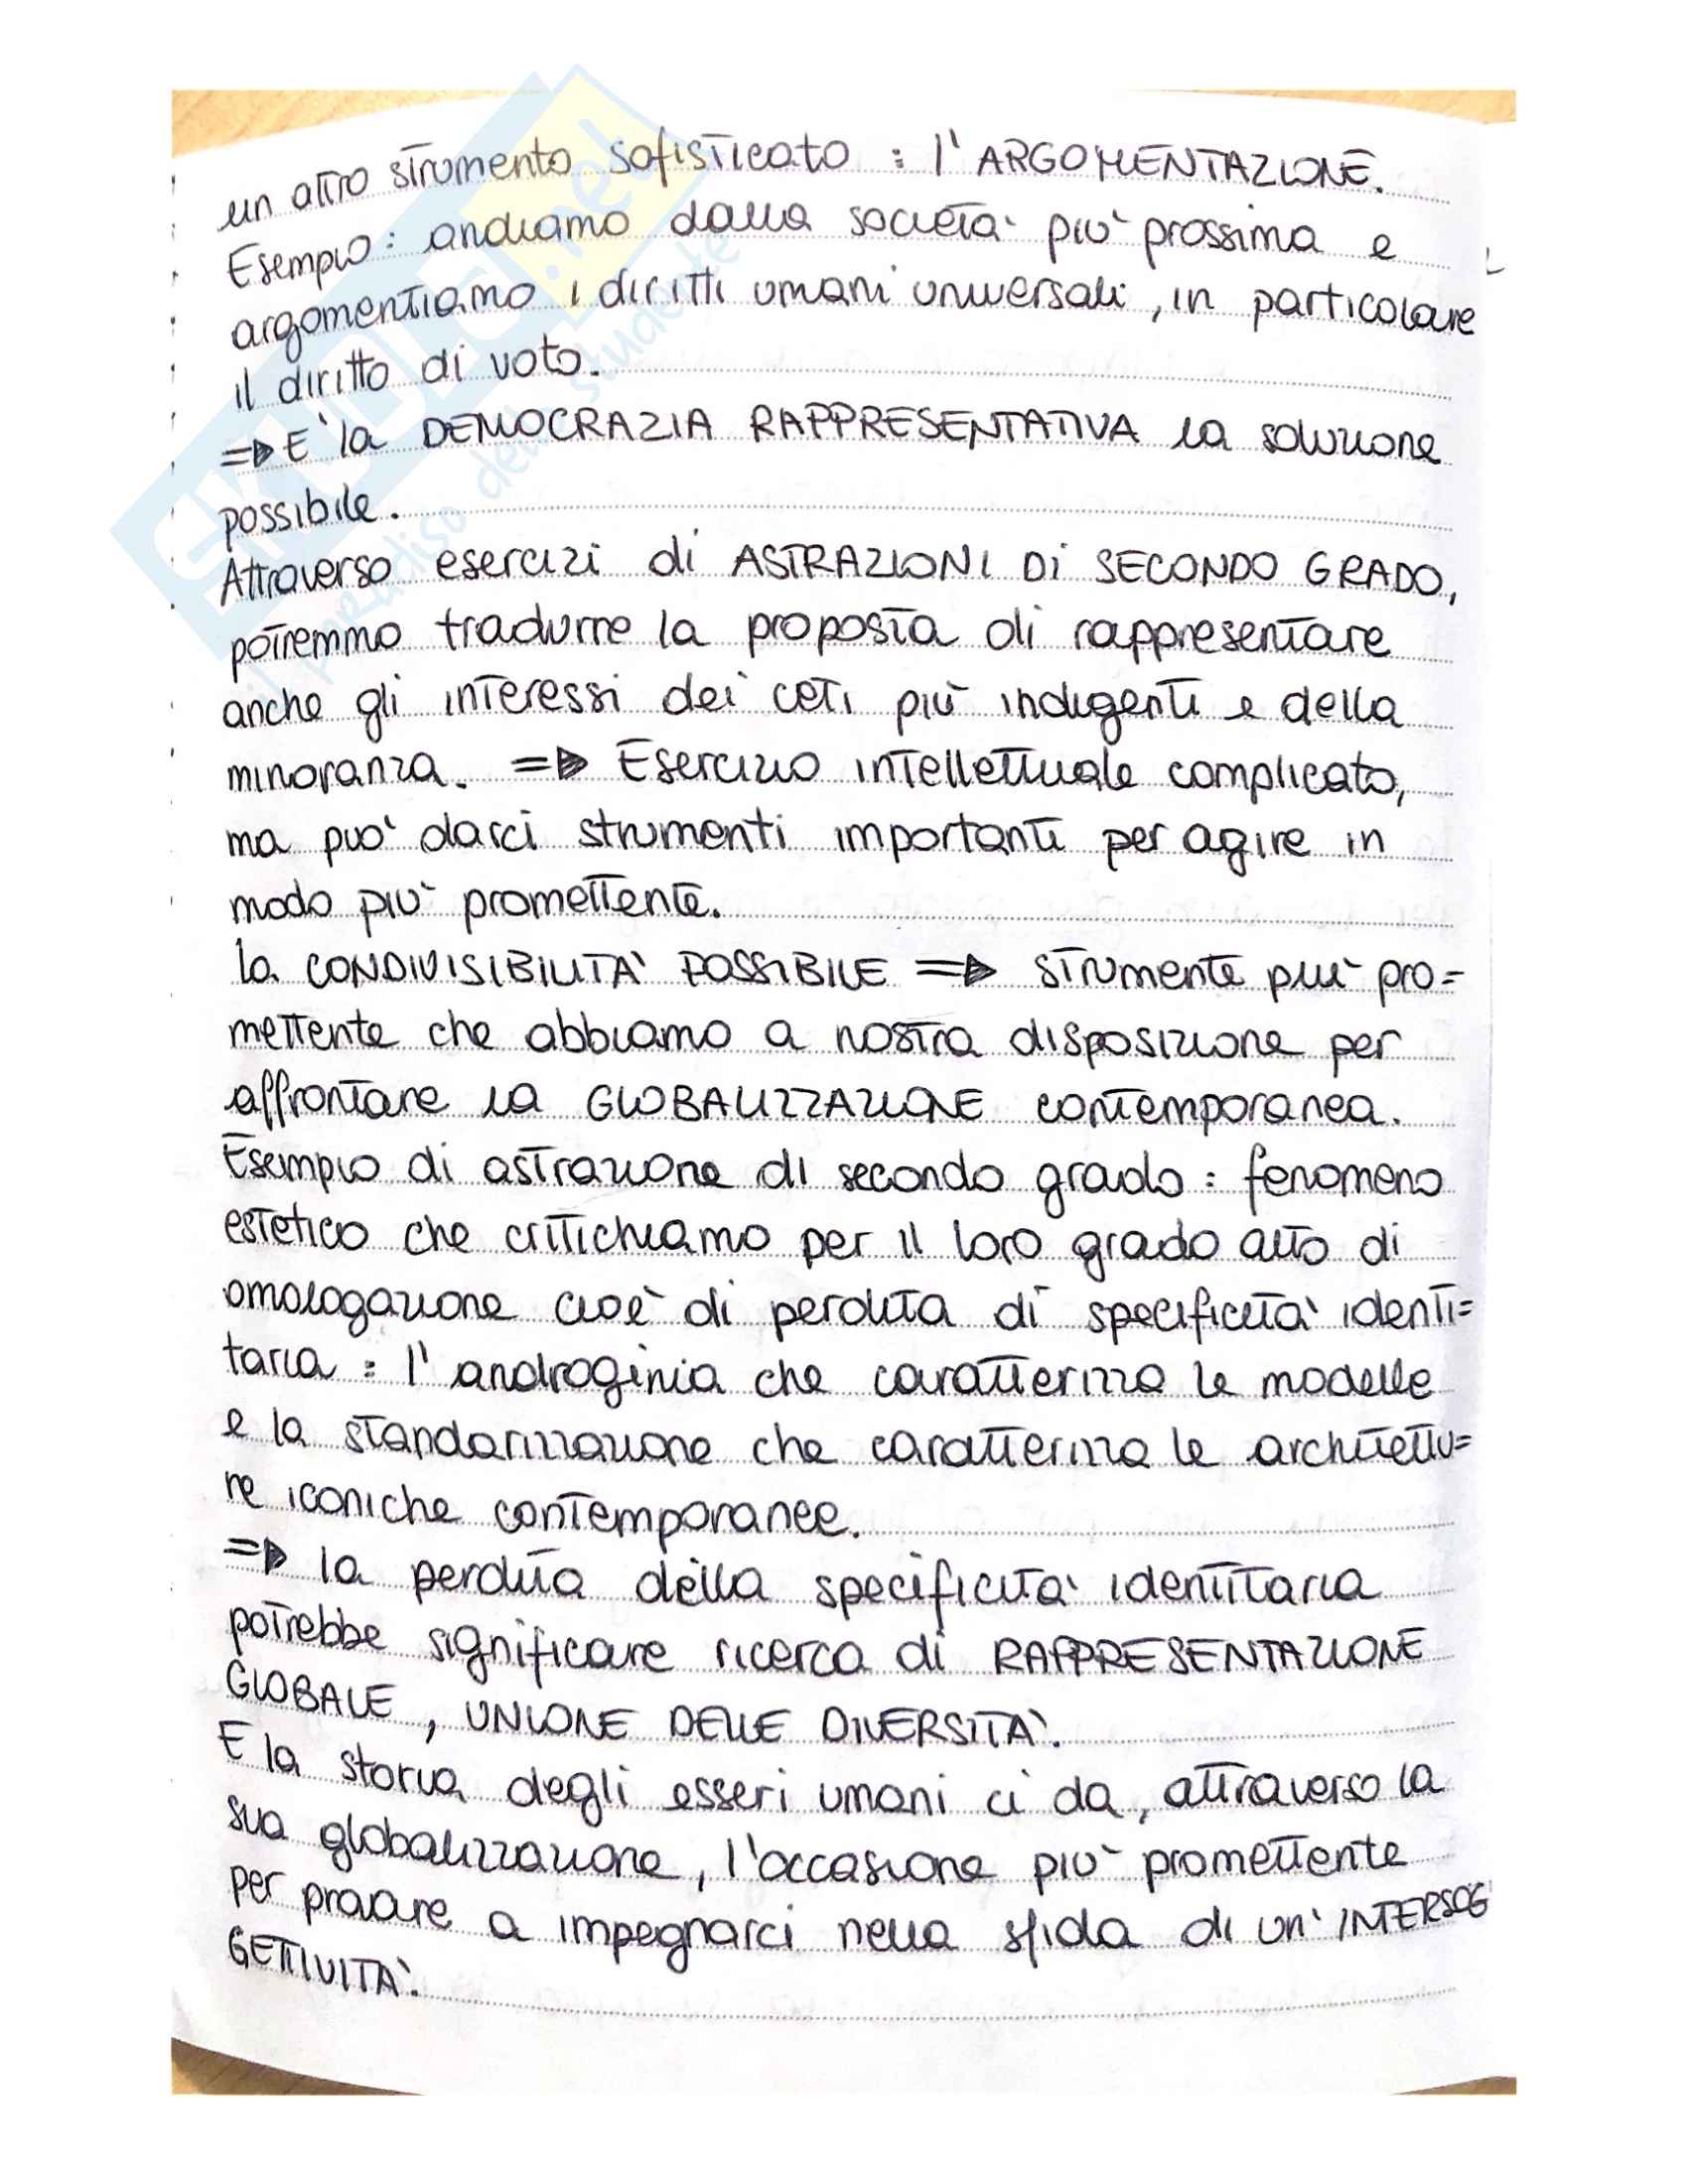 un altro strumento sofisticato : l'ARGOMENTAZIONE.
Esempio : andiamo dalla società più prossima e
argomentiamo i diritti umani universali, in particolare
il diritto di voto.
=> E' la DEMOCRAZIA RAPPRESENTATIVA la soluzione
possibile.
Attraverso esercizi di ASTRAZIONI DI SECONDO GRADO,
potremmo tradurre la proposta di rappresentare
anche gli interessi dei ceti più indigenti e della
minoranza. => Esercizio intellettuale complicato,
ma può darci strumenti importanti per agire in
modo più promettente.
La CONDIVISIBILITA' POSSIBILE => strumente più pro=
mettente che abbiamo a nostra disposizione per
affrontare la GLOBALIZZAZIONE contemporanea.
Esempio di astrazione di secondo grado : fenomeno
estetico che critichiamo per il loro grado alto di
omologazione cioè di perdita di specificità identi=
taria : l'androginia che caratterizza le modelle
e la standarizzazione che caratterizza le architettu=
re iconiche contemporanee.
=> la perdita della specificità identitaria
potrebbe significare ricerca di RAPPRESENTAZIONE
GLOBALE, UNIONE DELLE DIVERSITA'.
E la storia degli esseri umani ci da, attraverso la
sua globalizzazione, l'occasione più promettente
per provare a impegnarci nella sfida di un'INTERSOG
GETTIVITA'.
SKUOLA.net
il paradiso dello studente